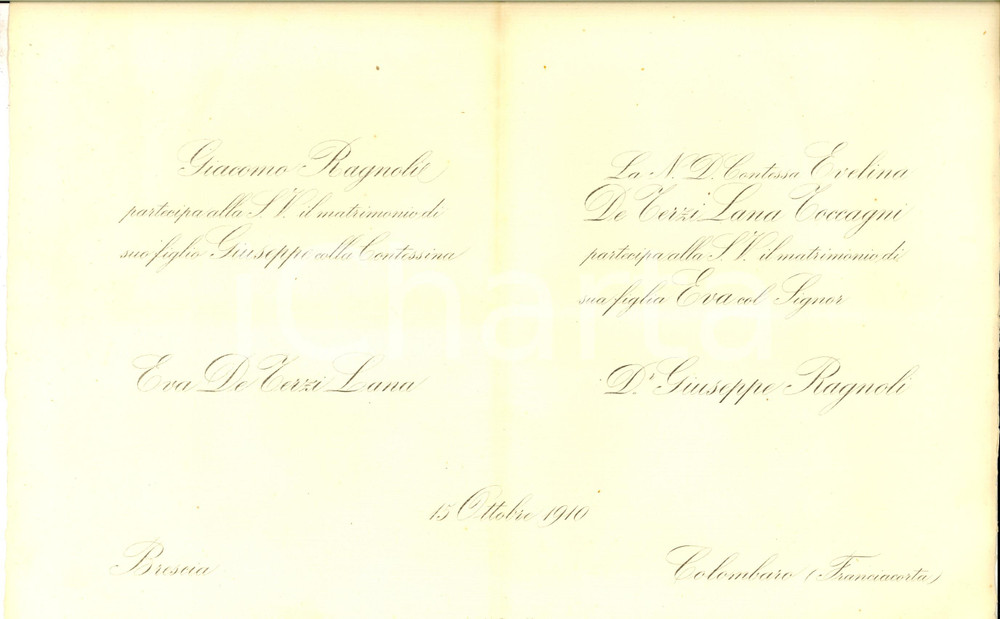 Giacomo Ragnoli
partecipa alla S. V. il matrimonio di
suo figlio Giuseppe colla Contessina
Eva De Terzi Lana
La N. D. Contessa Evelina
De Terzi Lana Toccagni
partecipa alla S. V. il matrimonio di
sua figlia Eva col Signor
Dr. Giuseppe Ragnoli
15 Ottobre 1910
Brescia
Colombaro (Franciacorta)
iCharta